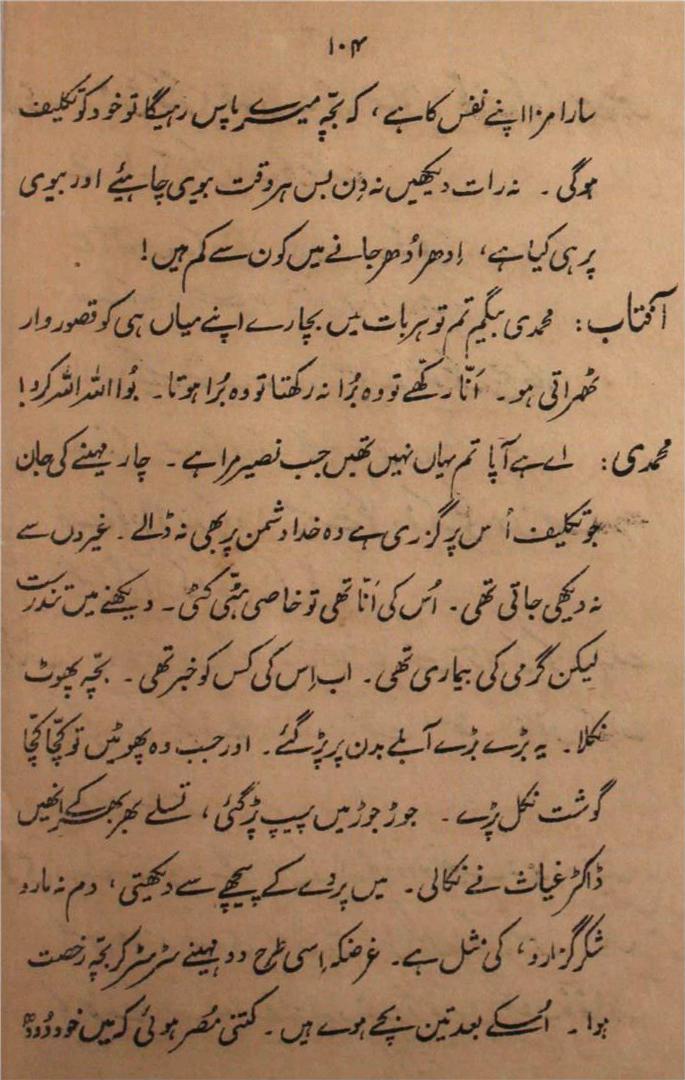 ۱۰۴
سارا مزا اپنے نفس کا ہے، کہ بچّہ میرے پاس رہیگا تو خود کو تکلیف
ہوگی۔ نہ رات دیکھیں نہ دِن بس ہر وقت بیوی چاہئیے اور بیوی
پر ہی کیا ہے، اِدھر اُدھر جانے میں کون سے کم ہیں!
آفتاب: محمدی بیگم تم تو ہر بات میں بچارے اپنے میاں ہی کو قصوروار
ٹھراتی ہو۔ اَنّا رکھے تو وہ بُرا نہ رکھتا تو وہ بُرا ہوتا۔ بُوا اللہ اللہ کرو!
محمدی: اے ہے آپا تم یہاں نہیں تھیں جب نصیر مرا ہے۔ چار مہینے کی جان
جو تکلیف اُس پر گزری ہے وہ خدا دشمن پر بھی نہ ڈالے۔ غیروں سے
نہ دیکھی جاتی تھی۔ اُس کی اَنّا تھی تو خاصی ہٹّی کٹّی۔ دیکھنے میں تندرست
لیکن گرمی کی بیماری تھی۔ اب اِس کی کس کو خبر تھی۔ بچّہ پھوٹ
نکلا۔ یہ بڑے بڑے آبلے بدن پر پڑ گئے۔ اور جب وہ پھوٹیں تو کچّا کچّا
گوشت نکل پڑے۔ جوڑ جوڑ میں پیپ پڑ گئی، تسلے بھر بھر کے انھیں
ڈاکٹر غیاث نے نکالی۔ میں پردے کے پیچھے سے دیکھتی، دم نہ مارو
شکر گزارو، کی مثل ہے۔ غرضکہ اِسی طرح دو مہینے سڑ سڑ کر بچّہ رخصت
ہوا۔ اُسکے بعد تین بچے ہوے ہیں۔ کتنی مُصر ہوئی کہ میں خود دُودھ